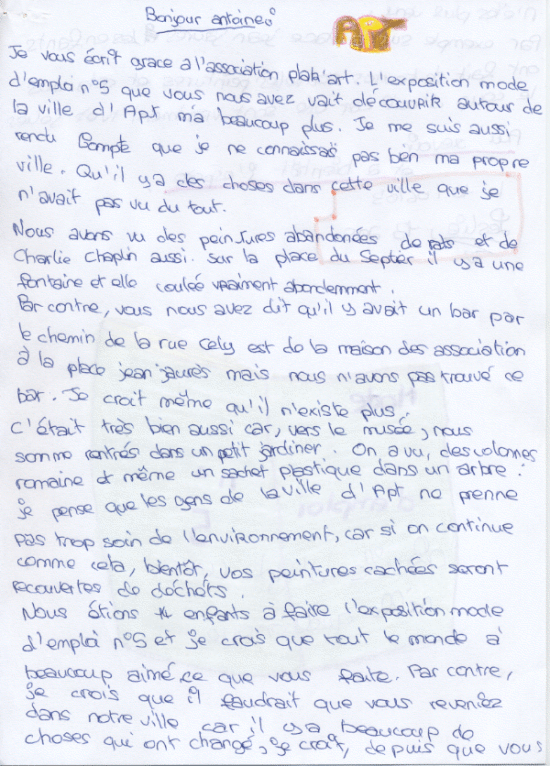 Bonjour antoine:
APT
Je vous écrit grace a l'association plak'art. L'exposition mode
d'emploi n°5 que vous nous avez vait découvrir autour de
la ville d'Apt m'a beaucoup plus. Je me suis aussi
rendu Compte que je ne connaissas pas bien ma propre
ville. Qu'il y a des choses dans cette ville que je
n'avait pas vu du tout.
Nous avons vu des peintures abandonées de rats et de
Charlie Chaplin aussi. Sur la place du Septier il y a une
fontaine et elle couleé vraiment abondemment.
Par contre, vous nous avez dit qu'il y avait un bar par
le chemin de la rue Cely est de la maison des association
à la place jean jaurès mais nous n'avons pas trouvé ce
bar. Je croit même qu'il n'existe plus.
C'était très bien aussi car, vers le musée, nous
somme rentrés dans un petit jardiner. On a vu, des colonnes
romaine et même un sachet plastique dans un arbre:
je pense que les gens de la ville d'Apt ne prenne
pas trop soin de l'environnement, car si on continue
comme cela, bientôt, vos peintures cachées seront
recouvertes de déchets.
Nous étions enfants à faire l'exposition mode
d'emploi n°5 et je crois que tout le monde à
beaucoup aimé ce que vous faite. Par contre,
je crois que il faudrait que vous reveniez
dans notre ville car il y a beaucoup de
choses qui ont changé, je croit, depuis que vous